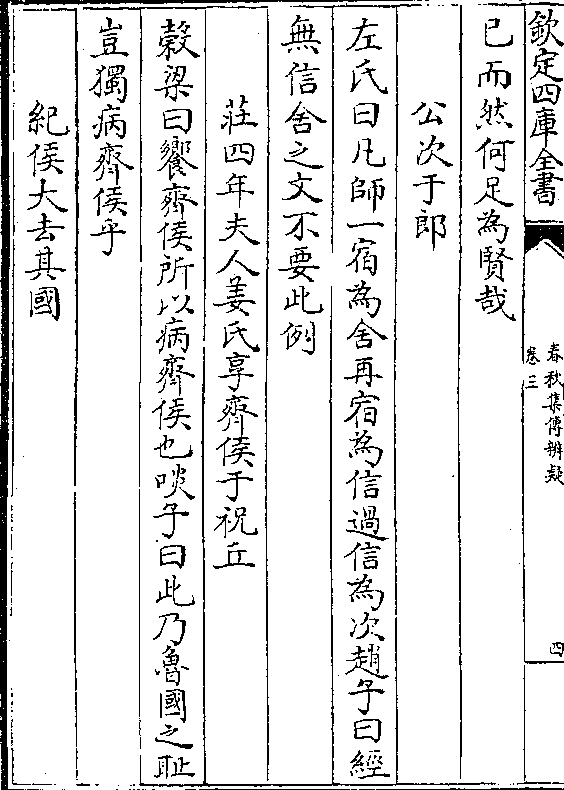 欽定四庫全書
春秋集傳辨疑
卷三
四
已而然何足為賢哉
公次于郎
左氏曰凡師一宿為舍再宿為信過信為次趙子曰經
無信舍之文不要此例
莊四年夫人姜氏享齊侯于祝丘
穀梁曰饗齊侯所以病齊侯也啖子曰此乃魯國之耻
豈獨病齊侯乎
紀侯大去其國